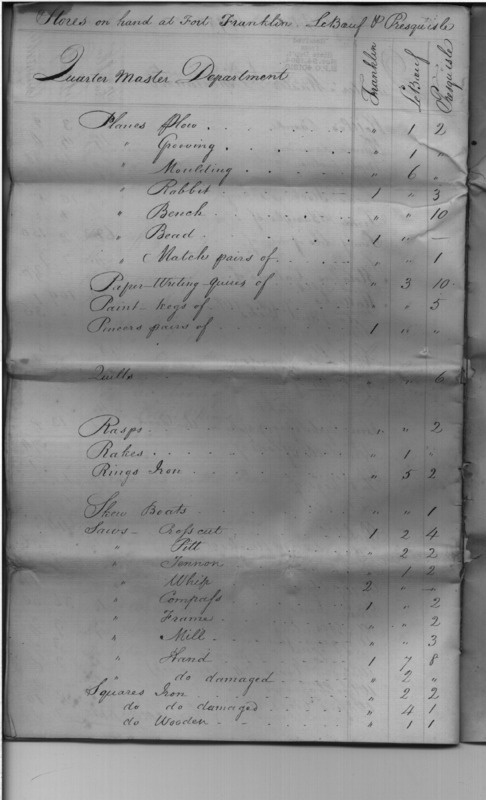 Stores on hand at Fort Franklin, LeBœuf & Presquisle
Quarter Master Department
Franklin
LeBœuf
Presquisle
Planes Plow . " 1 2
" Groving . " 1 "
" Moulding . " 6 "
" Rabbit . 1 " 3
" Bench . " " 10
" Bead . 1 " —
" Match pairs of . " " 1
Paper-Writing-quires of " 3 10
Paint-kegs of " " 5
Pincers pairs of 1 " "
Quills " " 6
Rasps . " " 2
Rakes . " 1 "
Rings Iron " 5 2
Skow Boats " " 1
Saws - Crosscut 1 2 4
" Pitt " 2 2
" Tennon " 1 2
" Whip 2 " -
" Compass 1 " 2
" Frame " " 2
" Mill " " 3
" Hand 1 7 8
" do damaged " 2 "
Squares Iron " 2 2
do do damaged " 4 1
do Wooden - - " 1 1